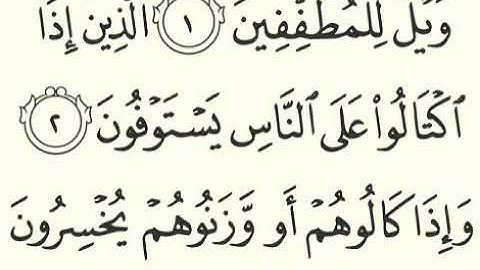 وَيْلٌ لِّلْمُطَفِّفِينَ ١ ٱلَّذِينَ إِذَا
ٱكْتَالُوا۟ عَلَى ٱلنَّاسِ يَسْتَوْفُونَ ٢
وَإِذَا كَالُوهُمْ أَو وَّزَنُوهُمْ يُخْسِرُونَ